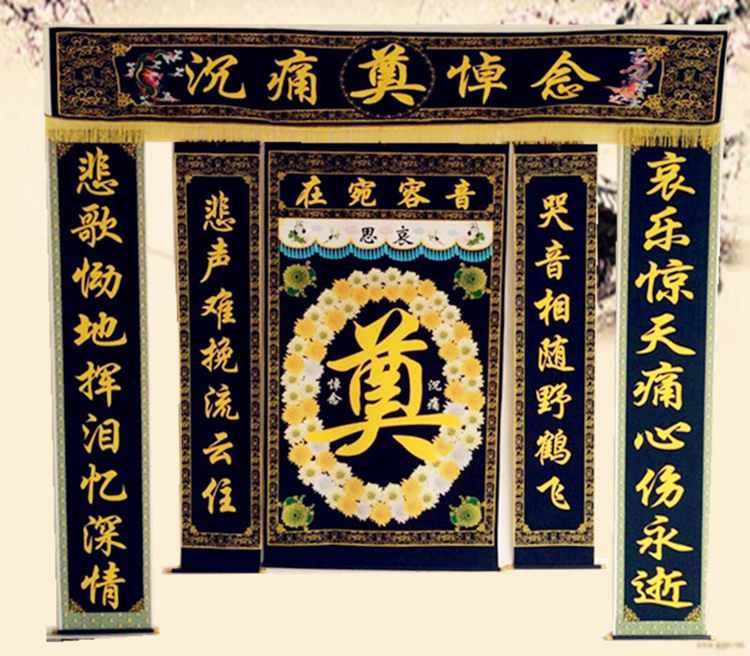 沉痛奠悼念
哀乐惊天痛心伤永逝
哭音相随野鹤飞
音容宛在
哀思
沉痛
奠
悼念
悲声难挽流云住
悲歌恸地挥泪忆深情